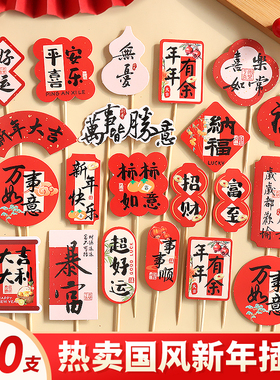 好运
平安喜乐
PING AN XI LE
無憂
年年有余
喜樂
如常
新年大吉
萬事皆勝意
納福
LUCKY
万事如意
新年快乐
柿柿如意
招财
富至
歲歲都蘇榆
大吉大利
暴富
超好运
事事顺
年年有余
万事如意
0支
热卖国风新年插